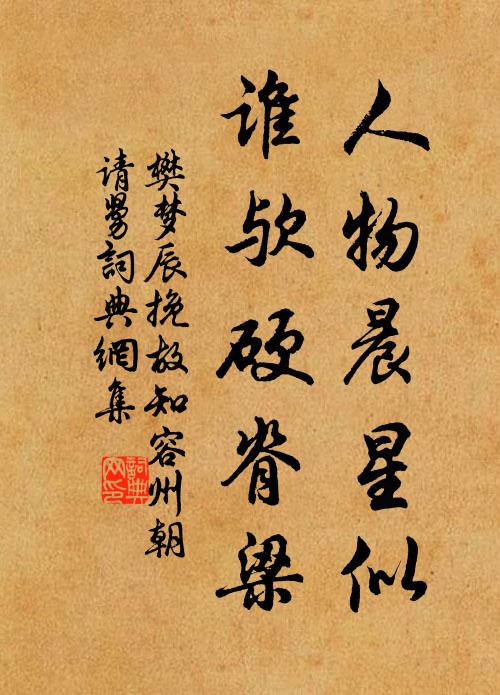 人物晨星似
谁欤硬脊梁
樊梦辰挽故知容州朝
请舅詞典網集
詞典
网印